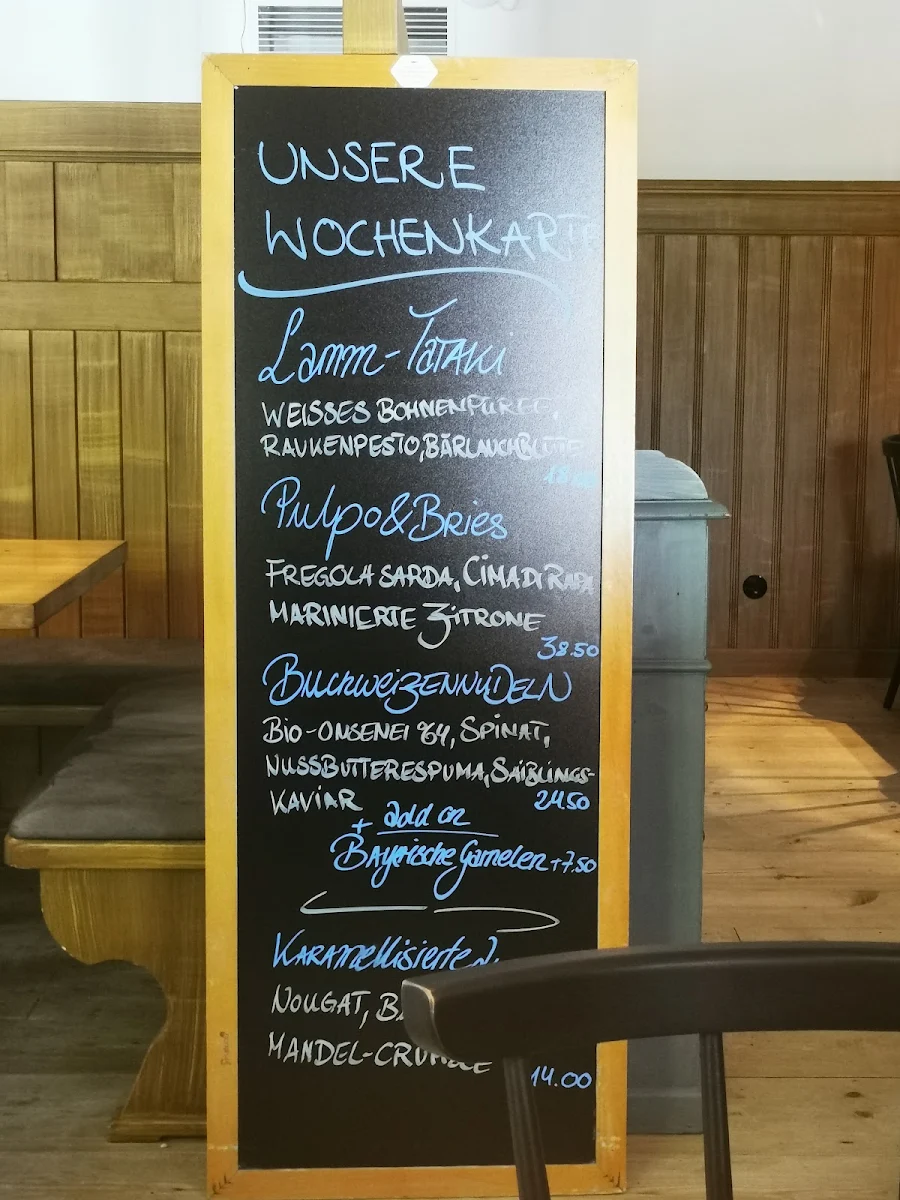 UNSERE
WOCHENKARTE
Lamm-Tataki
WEISSES BOHNENPÜREE,
RAUKENPESTO, BÄRLAUCHBLÜTE
Pulpo & Bries
FREGOLA SARDA, CIMA DI RAPA
MARINIERTE ZITRONE
38.50
BUCHWEIZENNUDELN
BIO-ONSENEI 64, SPINAT,
NUSSBUTTERESPUMA, SAIBLINGS-
KAVIAR
24.50
+ add on
BAYRISCHE Garnelen +7.50
KARAMELLISIERTE
NOUGAT,
MANDEL-CRUMBLE
14.00